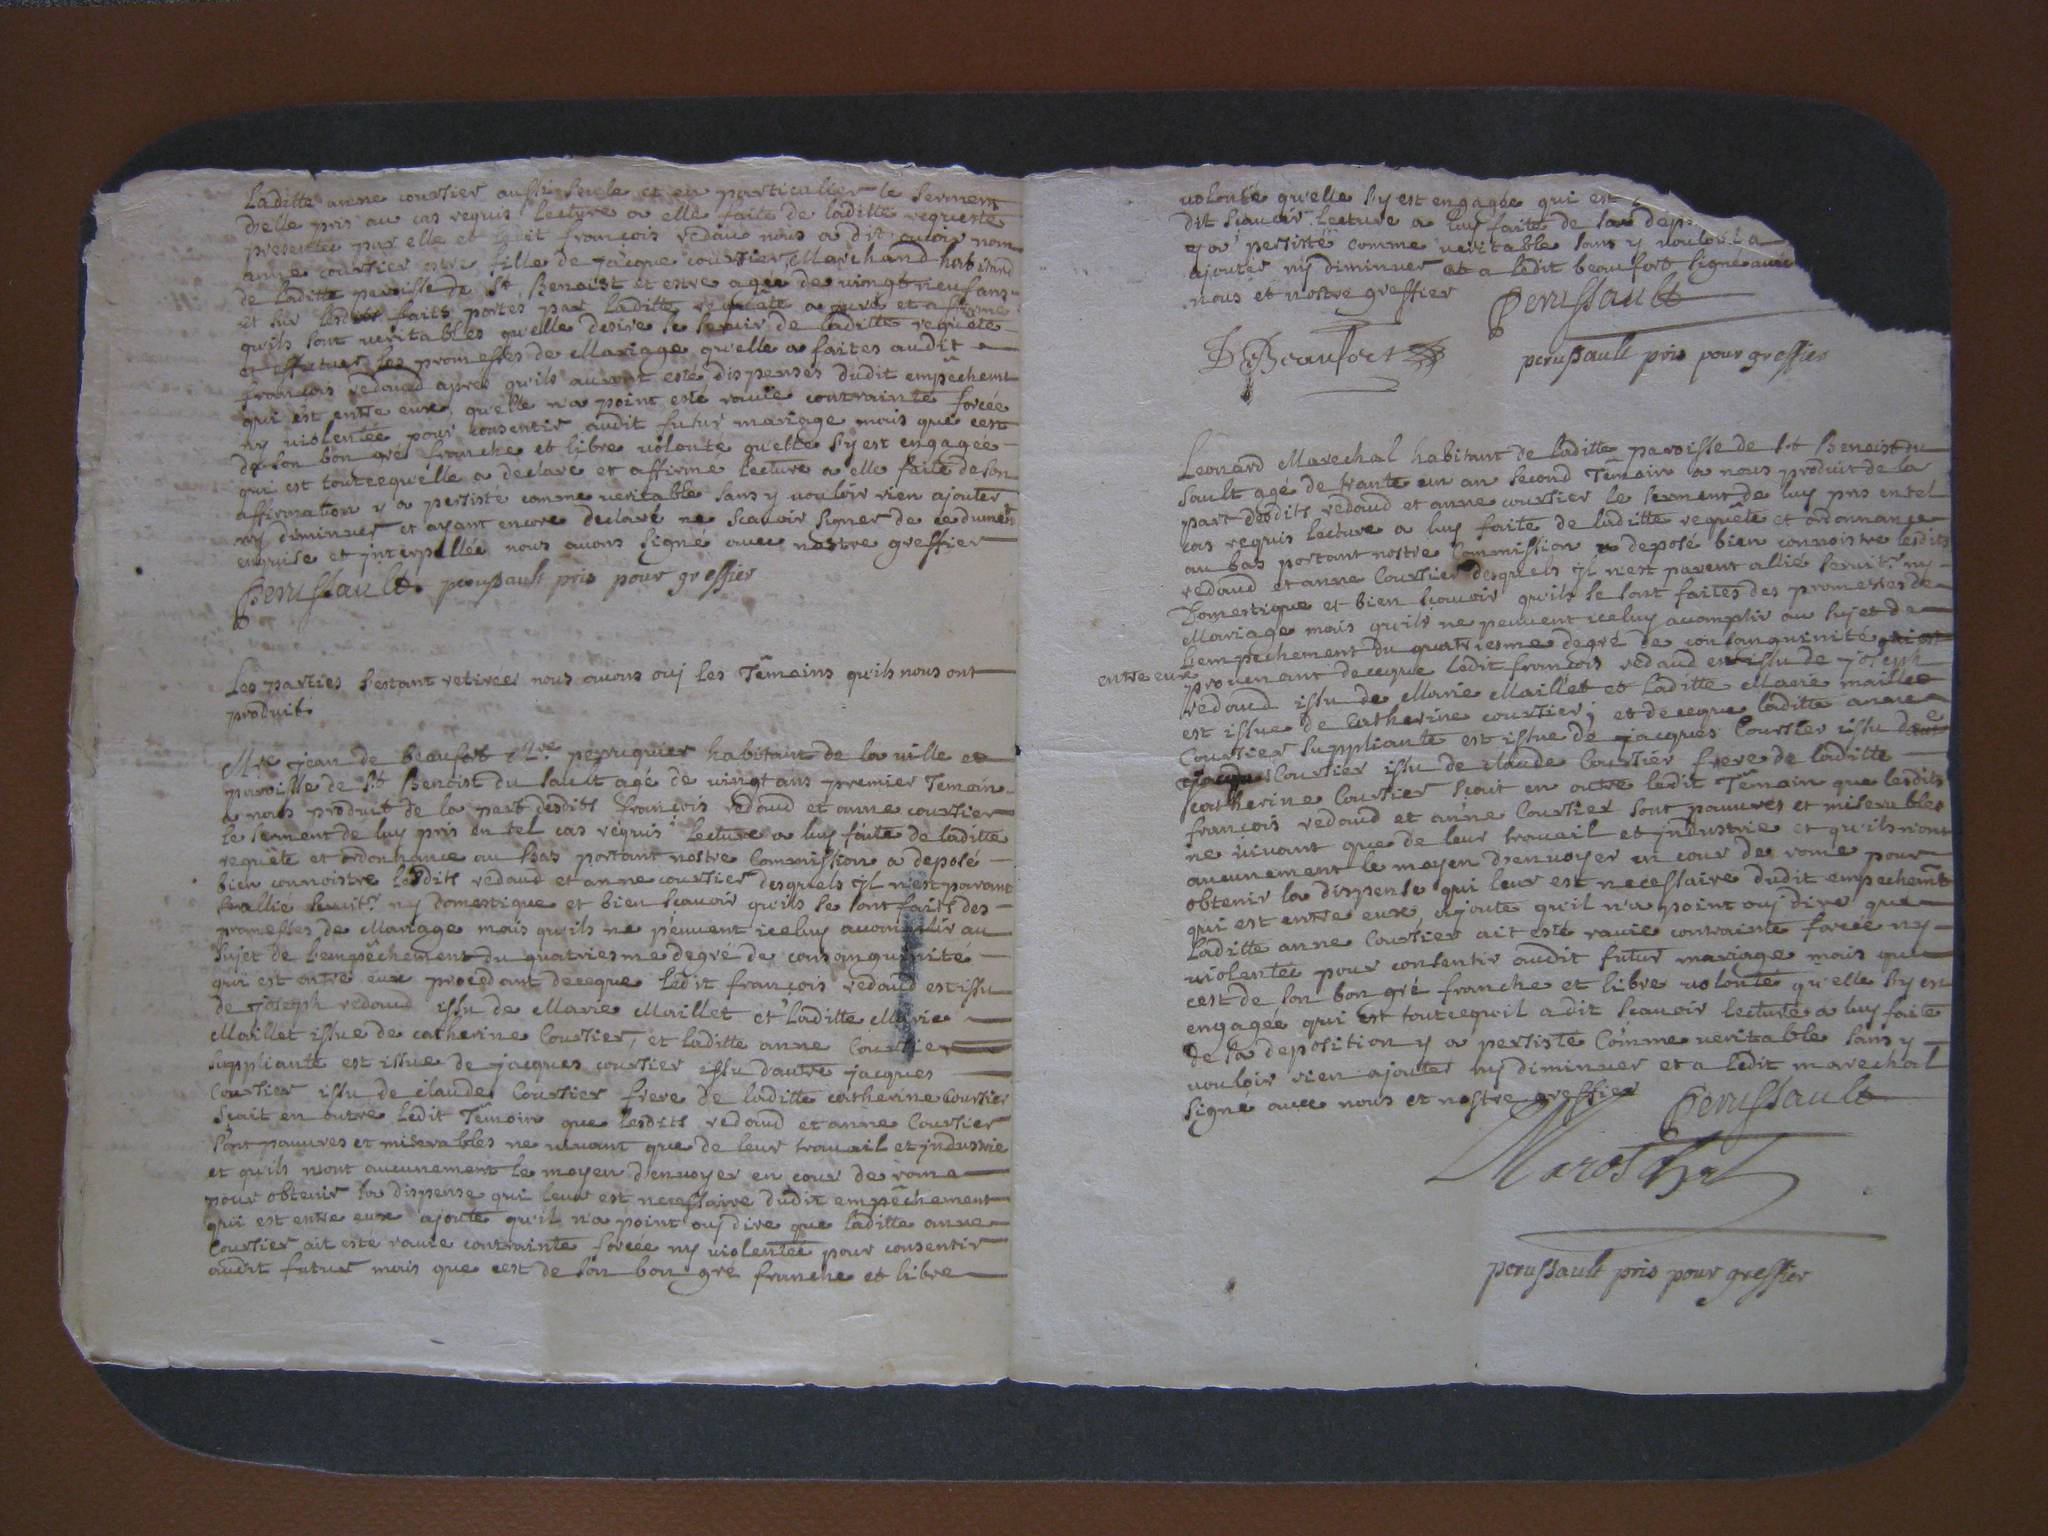 laditte anne coursier aussi seule et en particulier le serment
d'elle pris au cas requis lecture a elle faite de laditte requeste
presentée par elle et ledit françois redaud nous a dit avoir nom
anne coursier estre fille de jacque coursier Marchand habitand
de laditte paroisse de St Benoist et estre agée de vingt neuf ans
et sur lesdits faits portes par laditte requete a juré et affirmé
qu'ils sont veritables qu'elle desire se servir de laditte requete
et effectuer les promesses de Mariage qu'elle a faites audit
françois redaud apres qu'ils auront esté dispenses dudit empêchemt
qui est entre eux, qu'elle n'a point esté ravie contrainte forcée
ny violentée pour consentir audit futur mariage mais que cest
de son bon gré franche et libre volonté qu'elle s'y est engagée
qui est toutcequ'elle a declaré et affirmé lecture a elle faite de son
affirmation y a persisté comme veritable sans y vouloir rien ajouter
ny diminuer et ayant encore declaré ne scavoir signer de ce dument
enquise et jnterpellée nous avons signé avec nostre greffier
Perussault perussault pris pour greffier
Les parties s'estant retirées nous avons ouj les Temoins qu'ils nous ont
produit
Mre jean de beaufort Mre peruquier habitant de la ville et
paroisse de St Benoist du sault agé de vingt ans premier Temoin
a nous produit de la part desdits françois redaud et anne coursier
le serment de luy pris en tel cas requis lecture a luy faite de laditte
requête et ordonnance au bas portant nostre Commission a deposé
bien connoistre lesdits redaud et anne coursier desquels jl n'est parant
allie servitr ny domestique et bien sçavoir qu'ils se sont faits des
promesses de Mariage mais qu'ils ne peuvent iceluy accomplir au
sujet de l'empêchement du quatriesme degré de consanguinité
qui est entre eux procedant deceque ledit françois redaud est issu
de joseph redaud issu de Marie Maillet et laditte Marie
Maillet issue de catherine Coursier, et laditte anne Coursier
suppliante est issue de jacques coursier issu d'autre jacques
Coursier issu de claude Coursier frere de laditte catherine Coursier
sçait en outre ledit Temoin que lesdits redaud et anne Coursier
sont pauvres et miserables ne vivant que de leur travail et jndustrie
et qu'ils n'ont aucunement le moyen d'envoyer en cour de rome
pour obtenir la dispense qui leur est necessaire dudit empêchement
qui est entre eux ajoute qu'il n'a point ouj dire que laditte anne
Coursier ait esté ravie contrainte forcée ny violentée pour consentir
audit futur mais que cest de son bon gré franche et libre
volonté qu'elle s'y est engagée qui est
dit scavoir lecture a luy faite de sa dep
y a persisté comme veritable sans y vouloir
ajouter ny diminuer et a ledit beaufort signé avec
nous et nostre greffier Perussault
D Beaufort perussault pris pour greffier
Leonard Marechal habitant de laditte paroisse de St Benoist du
sault agé de trante un an second Temoin a nous produit de la
part desdits redaud et anne coursier le serment de luy pris en tel
cas requis lecture a luy faite de laditte requête et ordonnance
au bas portant nostre Commission a deposé bien connoistre lesdits
redaud et anne Coursier desquels jl n'est parent allié servitr ny
Domestique et bien scavoir qu'ils se sont faites des promesses de
Mariage mais qu'ils ne peuvent iceluy accomplir au sujet de
l'empechement du quatriesme degré de consanguinité qui est
entre eux provenant deceque ledit françois redaud est issu de joseph
redaud issu de Marie Maillet et laditte Marie maillet
est issue de Catherine coursier, et deceque laditte anne
Coursier suppliante est issue de jacques Coursier issu de
Coursier issu de claude Coursier frere de laditte
catherine Coursier scait en outre ledit Temoin que lesdits
françois redaud et anne Coursier sont pauvres et miserables
ne vivant que de leur travail et jndustrie et qu'ils n'ont
aucunement le moyen d'envoyer en cour de rome pour
obtenir la dispense qui leur est necessaire dudit empechemt
qui est entre eux, ajoute qu'il n'a point ouj dire que
laditte anne Coursier ait esté ravie contrainte forcée ny
violentée pour consentir audit futur mariage mais que
cest de son bon gré franche et libre volonté qu'elle s'y est
engagée qui est toutcequ'il a dit scavoir lecture a luy faite
de sa deposition y a persisté Comme veritable sans y
vouloir rien ajouter ny diminuer et a ledit marechal
signé avec nous et nostre greffier Perussault
Mareschal
perussault pris pour greffier